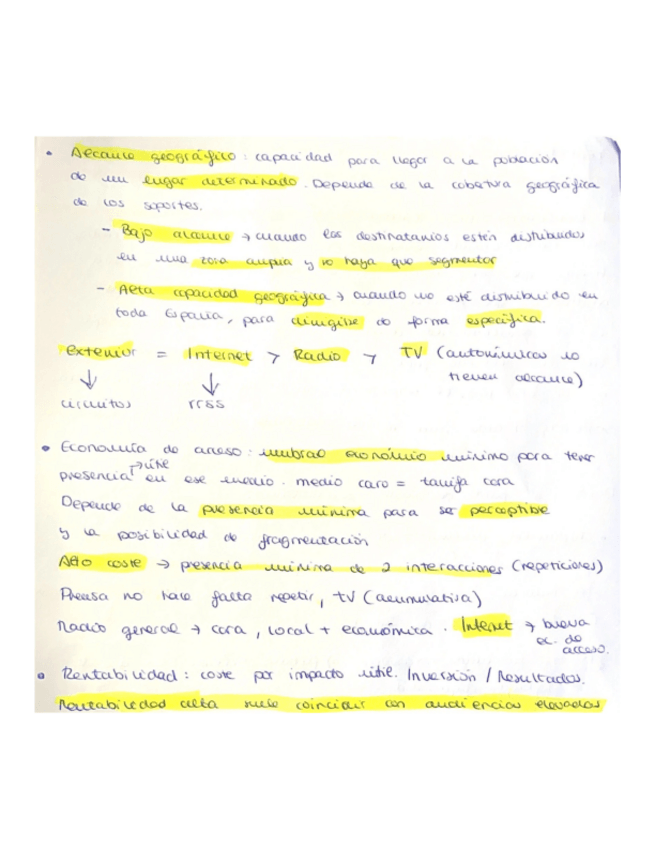 • Alcance geográfico: capacidad para llegar a la población
de un lugar determinado. Depende de la cobertura geográfica
de los soportes.
- Bajo alcance → cuando los destinatarios estén distribuidos
en una zona amplia y no haya que segmentar
- Alta capacidad geográfica → cuando no esté distribuido en
toda España, para dirigirse de forma específica.
exterior = Internet > Radio > TV (autonómicas no
tienen alcance)
↓ ↓
circuitos rrss
• Economía de acceso: umbral económico mínimo para tener
presencia → útil en ese medio. medio caro = tarifa cara
Depende de la presencia mínima para ser perceptible
y la posibilidad de fragmentación
Alto coste → presencia mínima de 2 interacciones (repeticiones)
Prensa no hace falta repetir, TV (acumulativa)
Radio general → cara, local + económica. Internet → buena
ec. de
acceso.
• Rentabilidad: coste por impacto útil. Inversión / Resultados.
Rentabilidad alta suele coincidir con audiencias elevadas